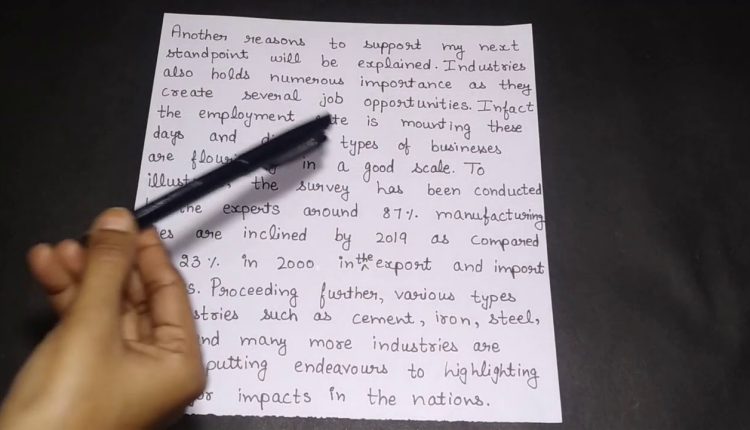 Another reasons to support my next
standpoint will be explained. Industries
also holds numerous importance as they
create several job opportunities. Infact
the employment is mounting these
days and types of businesses
are in a good scale. To
the survey has been conducted
the experts around 87% manufacturing
are inclined by 2019 as compared
23% in 2000 in the export and import
Proceeding further, various types
such as cement, iron, steel,
and many more industries are
putting endeavours to highlighting
impacts in the nations.